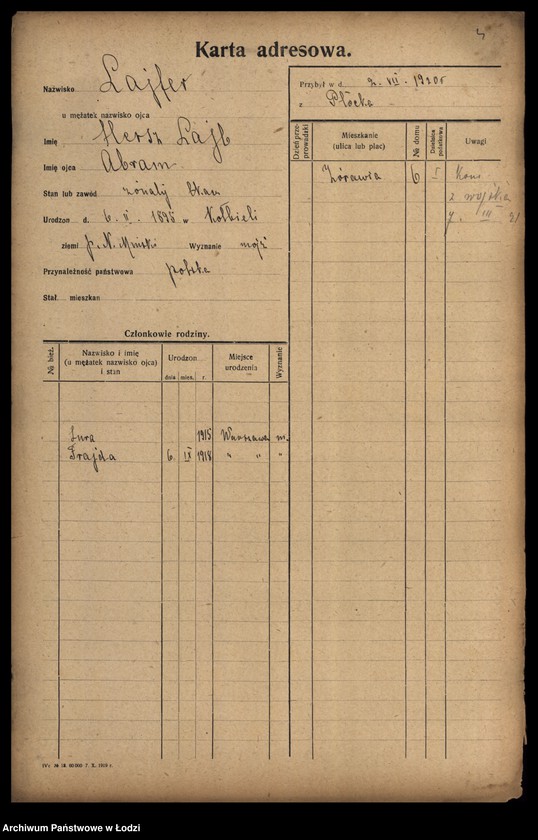 Karta adresowa.
Nazwisko Lajfer
u mężatek nazwisko ojca
Imię Hersz Lajb
Imię ojca Abram
Stan lub zawód żonaty
Urodzon d. 6. 1895 w Kołbieli
ziemi p. N. Miński Wyznanie mojż
Przynależność państwowa polska
Stał. mieszkan
Przybył w d. 2. VII. 1920 r
z Płocka
Dzień przeprowadzki
Mieszkanie
(ulica lub plac)
№ domu
Dzielnica podatkowa
Uwagi
Żórawia 6 I
z wojska
III 21
Członkowie rodziny.
№ bież.
Nazwisko i imię
(u mężatek nazwisko ojca)
i stan
Urodzon
dnia mies. r.
Miejsce
urodzenia
Wyznanie
Sura 1915 Warszawa m.
Frajda 6. IX 1918 " " "
IV. № 18. 60 000 7. X. 1919 r.
Archiwum Państwowe w Łodzi